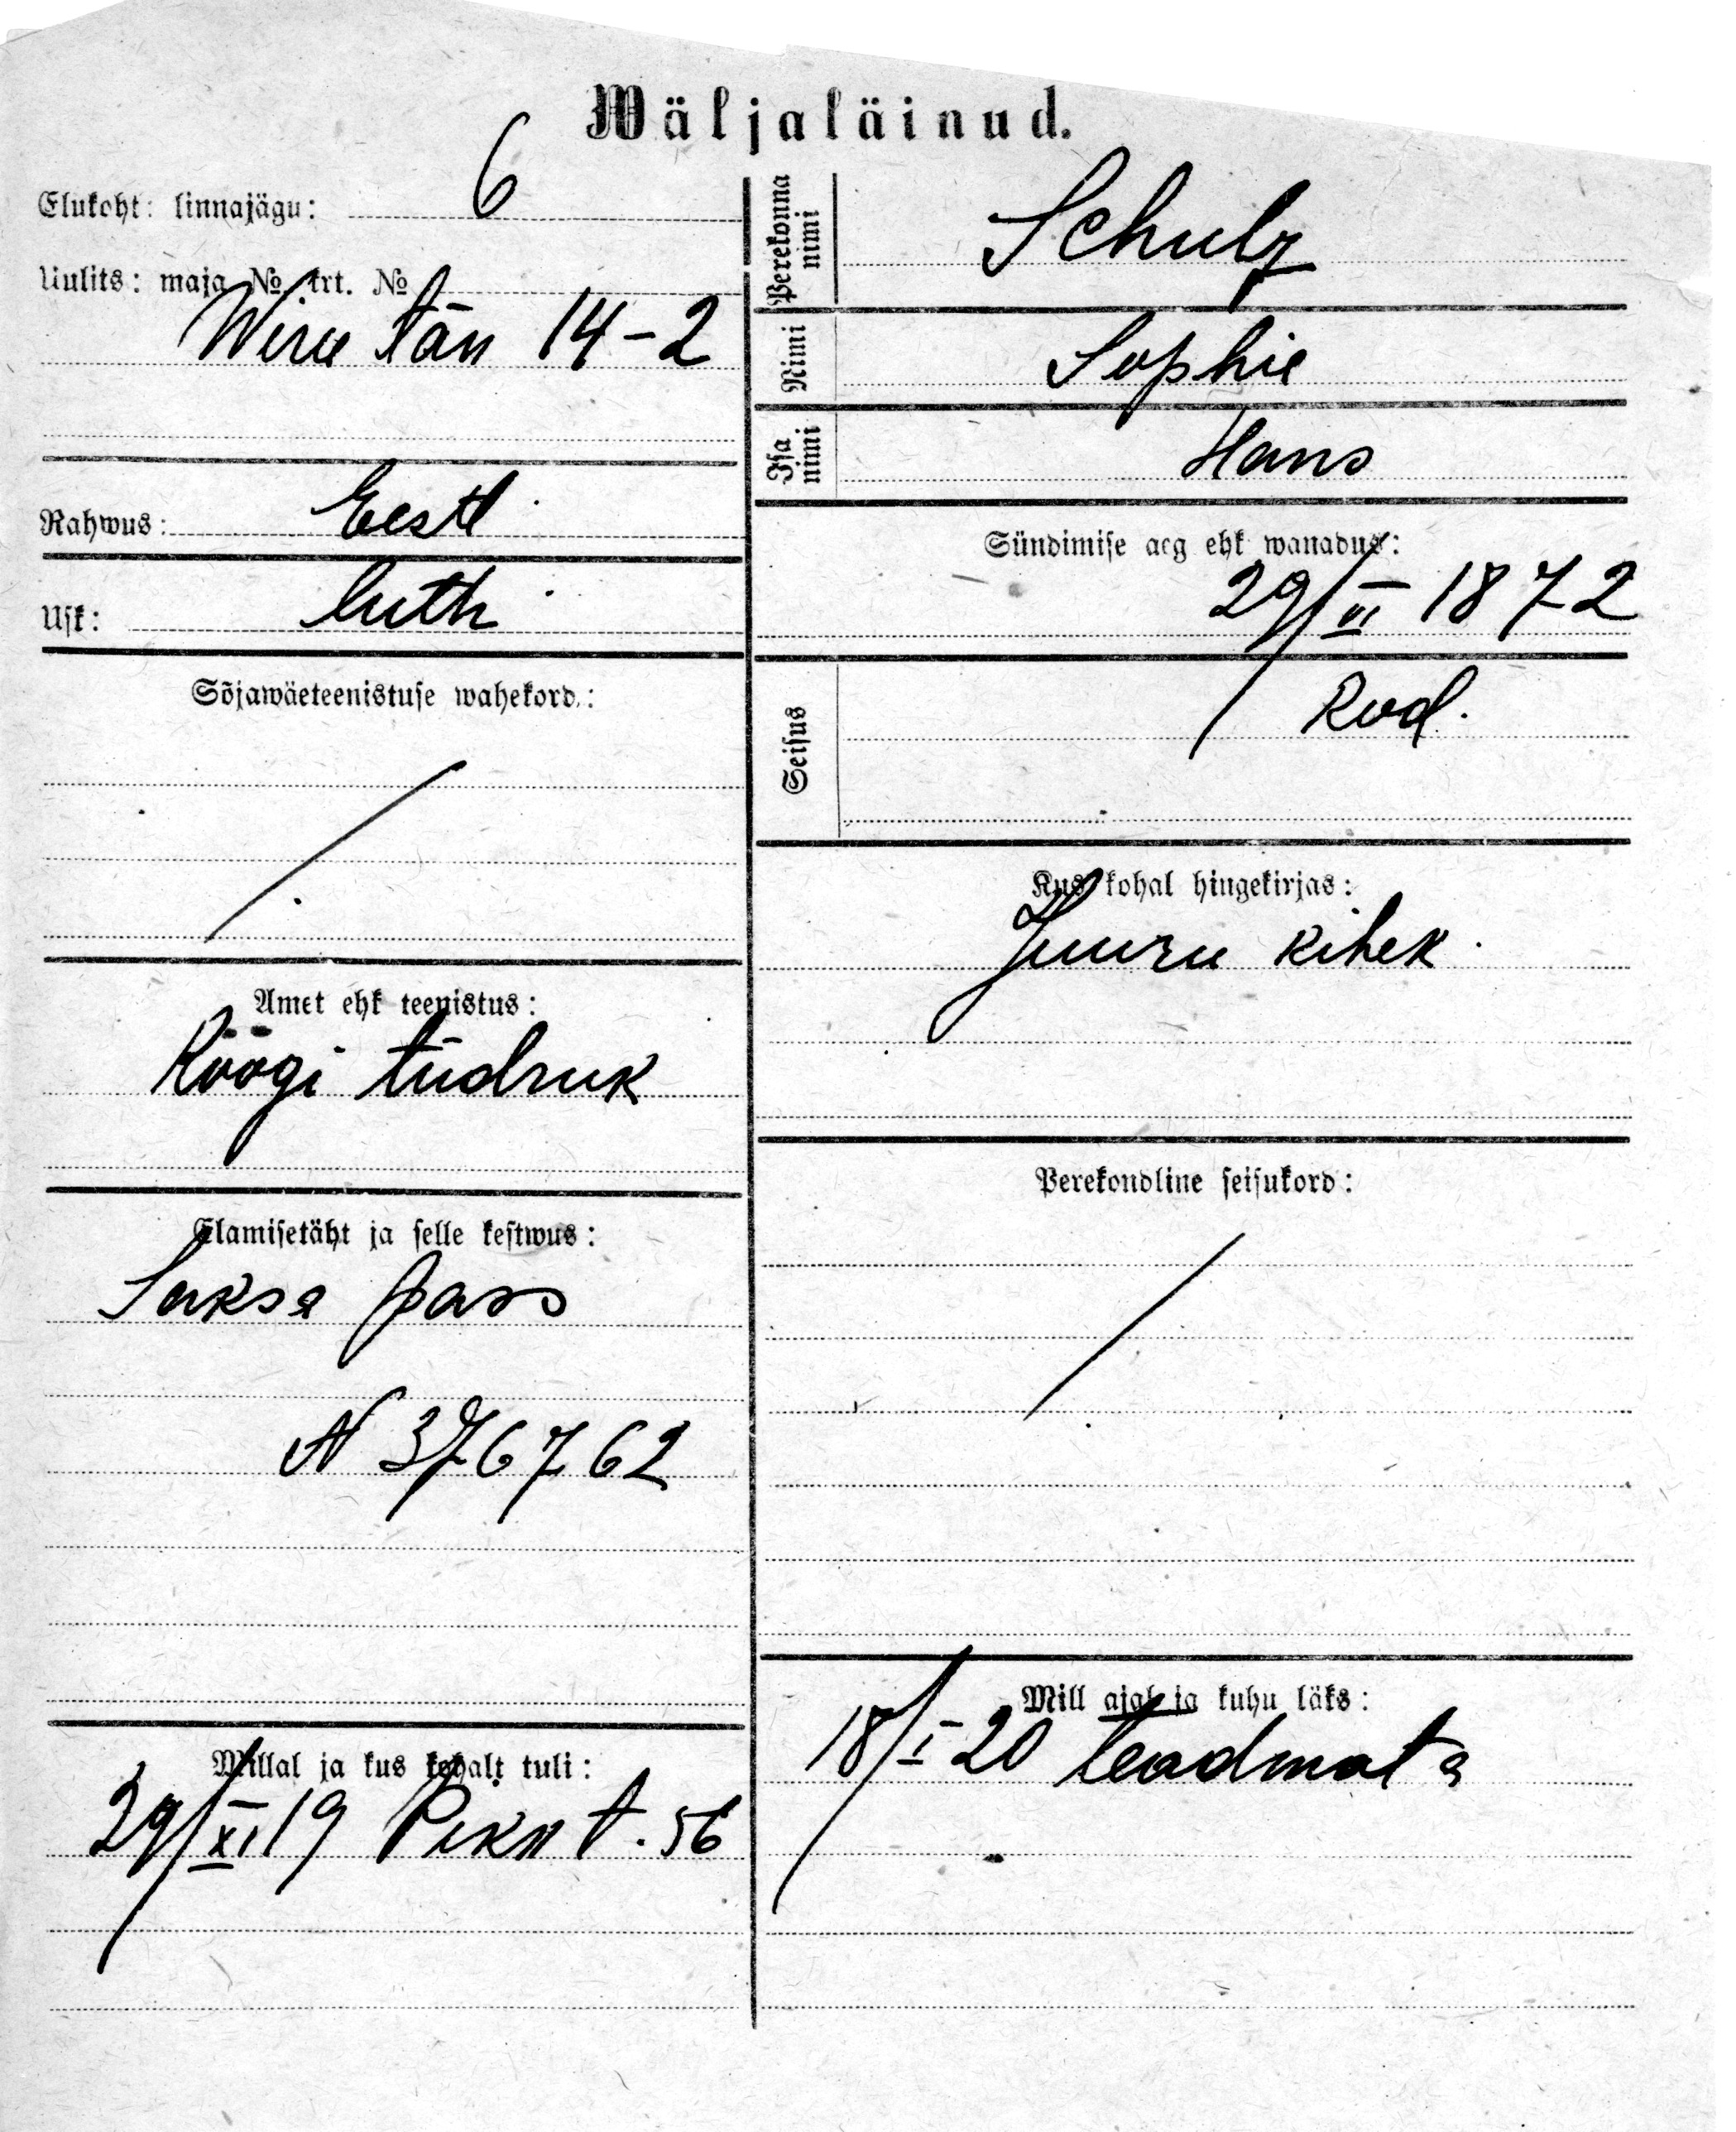 Wäljaläinud.
Elukoht: linnajägu: 6
Uulits: maja No krt. No
Wiru tän 14-2
Rahwus: Eesti
Usk: luth
Sõjawäeteenistuse wahekord:
Amet ehk teenistus:
Köögi tüdruk
Elamisetäht ja selle kestwus:
Saksa pass
N 376762
Millal ja kus kohalt tuli:
29/XI 19 Pikk t. 56
Perekonna nimi Schulz
Nimi Sophie
Isa nimi Hans
Sündimise aeg ehk wanadus:
29/VI 1872
Seisus
Kus kohal hingekirjas:
Juuru kihek.
Perekondline seisukord:
Mill ajal ja kuhu läks:
18/I 20 teadmata